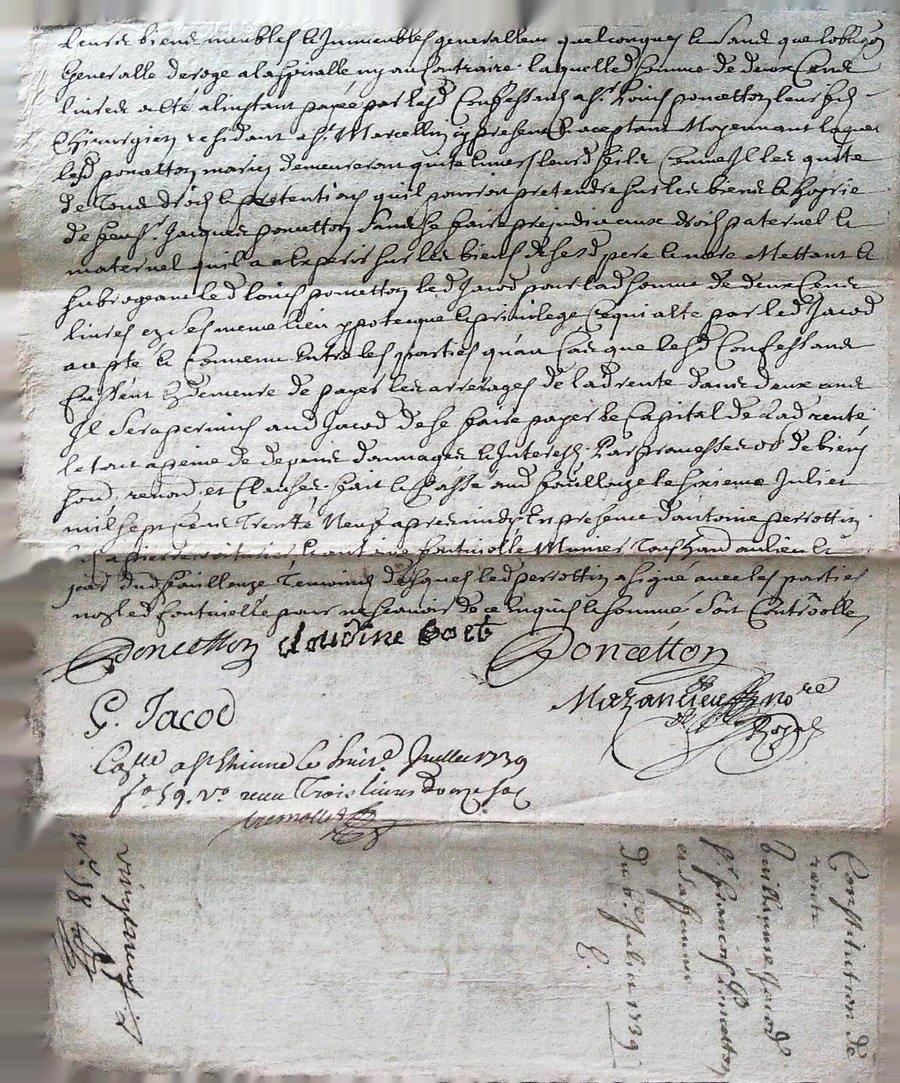 leurs biens meubles et Immeubles generallem quelconques et sans que lobligaon
Generalle deroge a la specialle ny au Contraire laquelle somme de deux Cens
livres a ete a linstant payée par lesd Confessants a sr. Louis poncetton leur fils
Chirurgien residant a st. Marcellin cy present & aceptant Moyennant laquel
lesd poncetton mariés demeureront quite envers leurd fils Comme Il les quite
de Tous droits et pretentions quil pourroit pretendre sur les biens et hoyrie
de feu sr. Jacques poncetton sans se faire prejudice aux droits paternel et
maternel quil a a Esperer sur les biens de sesd pere et mere Mettant et
subrogeant led louis poncetton led Jacod pour lad somme de deux Cens
livres en ses meme lieu ypoteque et privilege Ce qui a ete par led Jacod
acepté et Convenu Entre les parties quau Cas que lesd Confessants
fussent En demeure de payer les arrerages de lad rente dans deux ans
Il sera permis aud Jacod de se faire payer le Capital de lad rente
le tout a peine de depens dommages et Interests Par promesses ob de biens
soud renond et Clauses fait et Passé aud feuillouze le sixieme Juliet
mil sept cens Trente Neuf apres midy En presence dantoine perrottin
fontvielle
jour dud feuillouze Temoins desquels led perrottin a signé avec les parties
non led fontvielle pour ne scavoir de ce Enquis et sommé Soit Controolle
Poncetton Claudine Poncetton
G. Jacod
nore
Royal
Con.lle a St Etienne le Juillet 1739
fo 59. vo. reçu Trois livres douze sols
Constitution de
rente
Guillaume Jacod
Sr francois Poncetton
et sa femme
du 6e. Juliet 1739
vingt neuf
no. 58